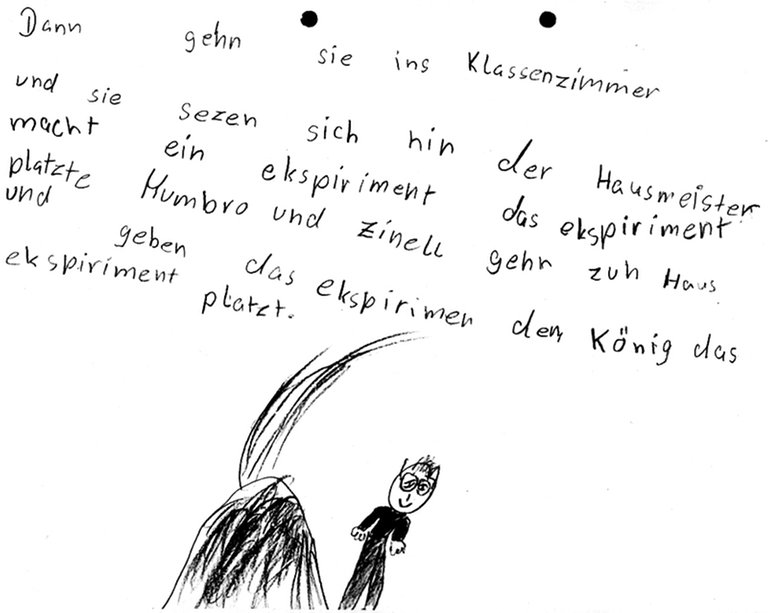 Dann gehn sie ins Klassenzimmer
und sie sezen sich hin der Hausmeister
macht ein ekspiriment das ekspiriment
platzte Humbro und zinell gehn zuh Haus
und geben das ekspirimen dem König das
ekspiriment platzt.